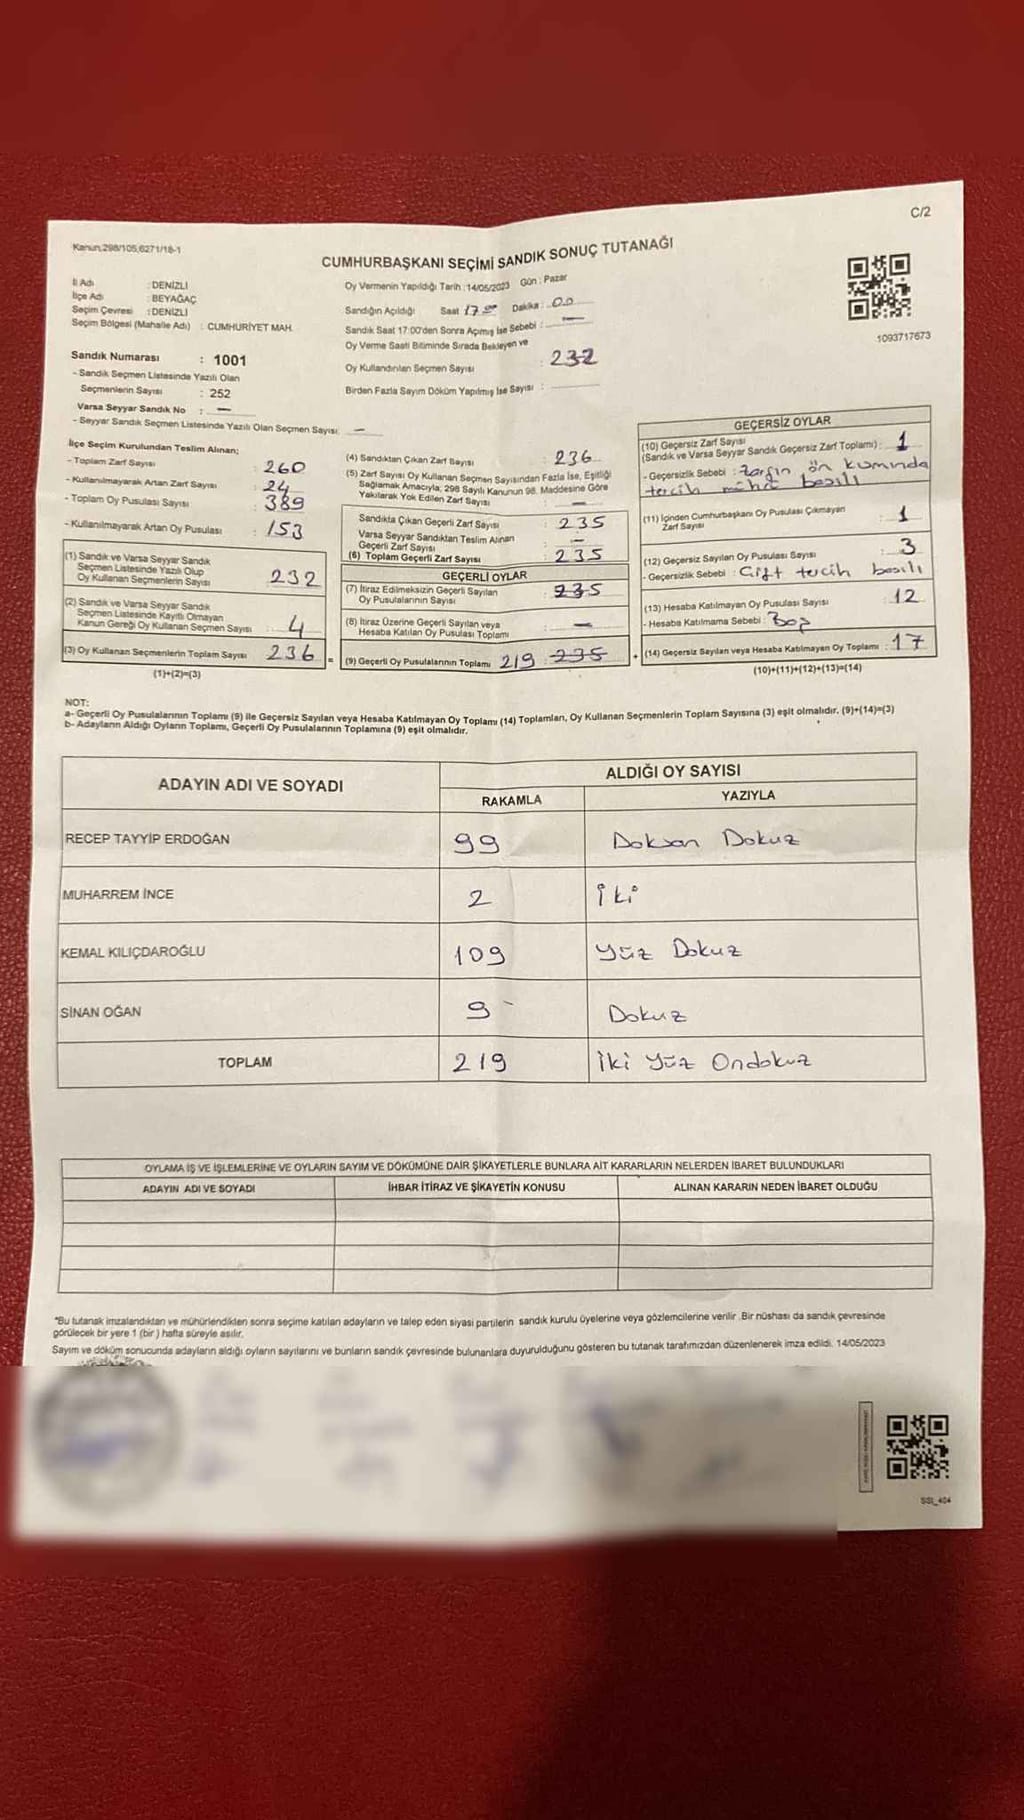 C/2
Kanun;298/105,6271/18-1
CUMHURBAŞKANI SEÇİMİ SANDIK SONUÇ TUTANAĞI
İl Adı : DENİZLİ
İlçe Adı : BEYAĞAÇ
Seçim Çevresi : DENİZLİ
Seçim Bölgesi (Mahalle Adı) : CUMHURİYET MAH.
Sandık Numarası : 1001
- Sandık Seçmen Listesinde Yazılı Olan
Seçmenlerin Sayısı : 252
Varsa Seyyar Sandık No : —
- Seyyar Sandık Seçmen Listesinde Yazılı Olan Seçmen Sayısı: —
Oy Vermenin Yapıldığı Tarih :14/05/2023 Gün : Pazar
Sandığın Açıldığı Saat 17.00 Dakika : 00
Sandık Saat 17:00'den Sonra Açımış İse Sebebi : —
Oy Verme Saati Bitiminde Sırada Bekleyen ve
Oy Kullandırılan Seçmen Sayısı : 232
Birden Fazla Sayım Döküm Yapılmış İse Sayısı :
1093717673
İlçe Seçim Kurulundan Teslim Alınan;
- Toplam Zarf Sayısı : 260
- Kullanılmayarak Artan Zarf Sayısı : 24
- Toplam Oy Pusulası Sayısı : 389
- Kullanılmayarak Artan Oy Pusulası : 153
(1) Sandık ve Varsa Seyyar Sandık
Seçmen Listesinde Yazılı Olup
Oy Kullanan Seçmenlerin Sayısı : 232
(2) Sandık ve Varsa Seyyar Sandık
Seçmen Listesinde Kayıtlı Olmayan
Kanun Gereği Oy Kullanan Seçmen Sayısı : 4
(3) Oy Kullanan Seçmenlerin Toplam Sayısı : 236 =
(1)+(2)=(3)
(4) Sandıktan Çıkan Zarf Sayısı : 236
(5) Zarf Sayısı Oy Kullanan Seçmen Sayısından Fazla İse, Eşitliği
Sağlamak Amacıyla; 298 Sayılı Kanunun 98. Maddesine Göre
Yakılarak Yok Edilen Zarf Sayısı : —
Sandıkta Çıkan Geçerli Zarf Sayısı : 235
Varsa Seyyar Sandıktan Teslim Alınan
Geçerli Zarf Sayısı : —
(6) Toplam Geçerli Zarf Sayısı : 235
GEÇERLİ OYLAR
(7) İtiraz Edilmeksizin Geçerli Sayılan
Oy Pusulalarının Sayısı : 235
(8) İtiraz Üzerine Geçerli Sayılan veya
Hesaba Katılan Oy Pusulası Toplamı : —
(9) Geçerli Oy Pusulalarının Toplamı 219 235 +
GEÇERSİZ OYLAR
(10) Geçersiz Zarf Sayısı
(Sandık ve Varsa Seyyar Sandık Geçersiz Zarf Toplamı) : 1
- Geçersizlik Sebebi : Zarfın ön kısmında
tercih mührü basılı
(11) İçinden Cumhurbaşkanı Oy Pusulası Çıkmayan
Zarf Sayısı : 1
(12) Geçersiz Sayılan Oy Pusulası Sayısı : 3
- Geçersizlik Sebebi : Çift tercih basılı
(13) Hesaba Katılmayan Oy Pusulası Sayısı : 12
- Hesaba Katılmama Sebebi : Boş
(14) Geçersiz Sayılan veya Hesaba Katılmayan Oy Toplamı : 17
(10)+(11)+(12)+(13)=(14)
NOT:
a- Geçerli Oy Pusulalarının Toplamı (9) ile Geçersiz Sayılan veya Hesaba Katılmayan Oy Toplamı (14) Toplamları, Oy Kullanan Seçmenlerin Toplam Sayısına (3) eşit olmalıdır. (9)+(14)=(3)
b- Adayların Aldığı Oyların Toplamı, Geçerli Oy Pusulalarının Toplamına (9) eşit olmalıdır.
ADAYIN ADI VE SOYADI
ALDIĞI OY SAYISI
RAKAMLA YAZIYLA
RECEP TAYYİP ERDOĞAN 99 Doksan Dokuz
MUHARREM İNCE 2 İki
KEMAL KILIÇDAROĞLU 109 Yüz Dokuz
SİNAN OĞAN 9 Dokuz
TOPLAM 219 İki Yüz Ondokuz
OYLAMA İŞ VE İŞLEMLERİNE VE OYLARIN SAYIM VE DÖKÜMÜNE DAİR ŞİKAYETLERLE BUNLARA AİT KARARLARIN NELERDEN İBARET BULUNDUKLARI
ADAYIN ADI VE SOYADI İHBAR İTİRAZ VE ŞİKAYETİN KONUSU ALINAN KARARIN NEDEN İBARET OLDUĞU
*Bu tutanak imzalandıktan ve mühürlendikten sonra seçime katılan adayların ve talep eden siyasi partilerin sandık kurulu üyelerine veya gözlemcilerine verilir. Bir nüshası da sandık çevresinde
görülecek bir yere 1 (bir) hafta süreyle asılır.
Sayım ve döküm sonucunda adayların aldığı oyların sayılarını ve bunların sandık çevresinde bulunanlara duyurulduğunu gösteren bu tutanak tarafımızdan düzenlenerek imza edildi. 14/05/2023
SSI_404